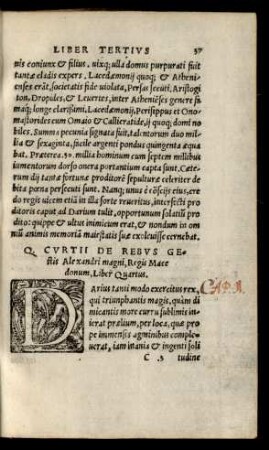 LIBER TERTIVS 37
nis coniunx & filius. uixq; ulla domus purpurati fuit
tantæ cladis expers. Lacedæmonij quoq; & Atheni-
enses erāt, societatis fide uiolata, Persas secuti. Aristogi
ton. Dropides, & Leuertes, inter Atheniēses genere fa
maq; longe clarissimi, Lacedæmonij, Perisippus et Ono-
mastorides cum Omaio & Callicratide, ij quoq; domi no
biles. Summa pecuniæ signata fuit, talentorum duo mil
lia & sexaginta, facile argenti pondus quingenta æqua
bat. Præterea .30. millia hominum cum septem millibus
iumentorum dorso onera portantium capta sunt. Cæte-
rum dij tantæ fortunæ proditorē sepulturæ celeriter de
bita pœna persecuti sunt. Nanq; unus ē cōscijs eius, cre
do regis uicem etiā in illa sorte reueritus, interfecti pro
ditoris caput ad Darium tulit, opportunum solatiū pro
dito: quippe & ultus inimicum erat, & nondum in om
niū animis memoriā maiestatis suæ exoleuisse cernebat.
Q. CVRTII DE REBVS GE-
stis Alexandri magni, Regis Mace
donum, Liber Quartus.
DArius tanti modo exercitus rex,
qui triumphantis magis, quàm di
micantis more curru sublimis ini-
erat prælium, per loca, quæ pro
pe immensis agminibus complè-
uerat, iam inania & ingenti soli
C 5 tudine
CAP. I.